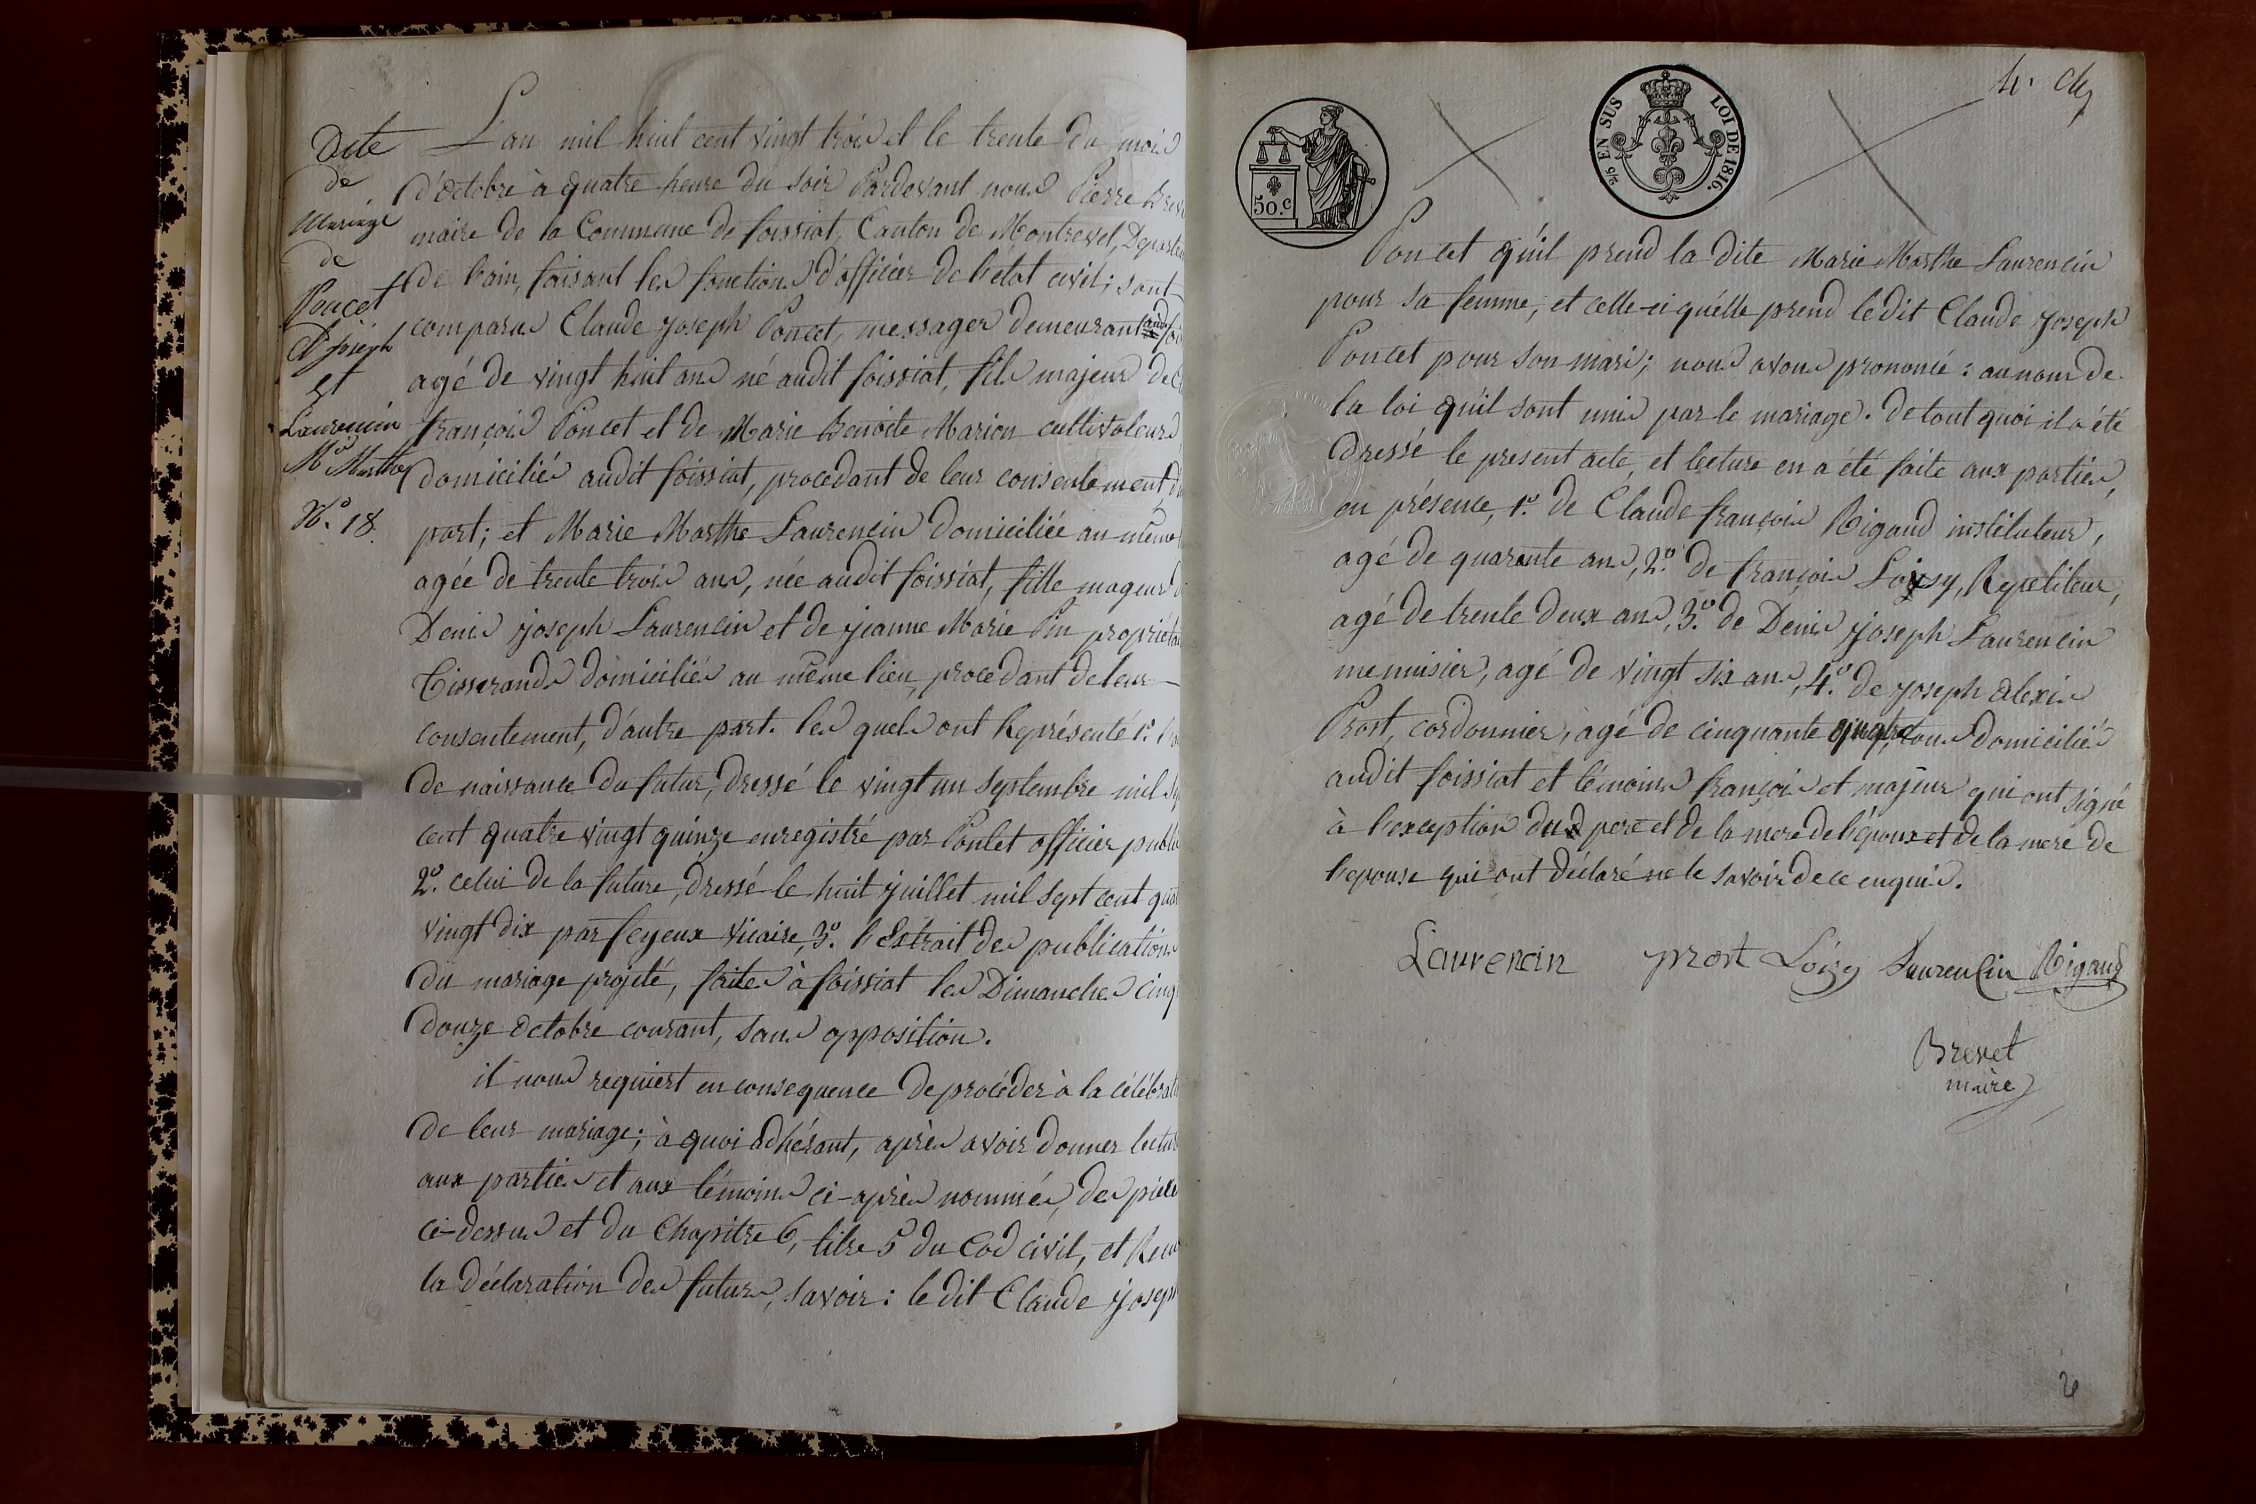 Acte
de
Mariage
de
Poncet
Cl. Joseph
et
Laurencin
Mie Marthe
N.° 18.
L'an mil huit cent vingt trois et le trente du mois
d'octobre à quatre heure du soir Pardevant nous Pierre Breve
maire de la Commune de foissiat, Canton de Montrevel, Departe
de l'ain, faisant les fonctions d'officier de l'etat civil; sont
comparus Claude Joseph Poncet, messager demeurant audit foi
agé de vingt huit ans né audit foissiat, fils majeur de
françois Poncet et de Marie Benoite Marion cultivateurs
domiciliés audit foissiat, procedant de leur consentement, d'u
part; et Marie Marthe Laurencin domiciliée au même
agée de trente trois ans, née audit foissiat, fille mageur d
Denis Joseph Laurencin et de jeanne Marie Pin propriéta
Tisserands domiciliés au même lieu, procedant de leur
consentement, d'autre part. les quels ont Représenté 1.°
de naissance du futur, dressé le vingt un septembre mil s
cent quatre vingt quinze enregistré par Poncet officier publi
2.° celui de la future, dressé le huit juillet mil sept cent qua
vingt dix par feyeux vicaire, 3.° l'Extrait des publications
du mariage projeté, faites à foissiat les Dimanches cinq
douze octobre courant, sans opposition.
il nous requiert en consequence de procéder à la célébrat
de leur mariage; à quoi adhérant, après avoir donner lectur
aux parties et aux témoins ci-après nommés, des pièce
ci-dessus et du Chapitre 6, titre 5 du Cod civil, et Recu
la déclaration des futurs, savoir: le dit Claude Joseph
50.c
2/5 EN SUS
LOI DE 1816.
Poncet qu'il prend la dite Marie Marthe Laurencin
pour sa femme, et celle-ci qu'elle prend le dit Claude Joseph
Poncet pour son mari; nous avons prononcé: au nom de
la loi qu'il sont unis par le mariage. de tout quoi il a été
dressé le present acte, et lecture en a été faite aux parties,
en présence, 1.° de Claude françois Rigaud instituteur,
agé de quarante ans, 2.° de françois Loisy, Repetiteur,
agé de trente deux ans, 3.° de Denis Joseph Laurencin
menuisier, agé de vingt six ans, 4.° de joseph alexis
Prost, cordonnier, agé de cinquante tous domiciliés
audit foissiat et témoins françois et majeurs qui ont signé
à l'exception du pere et de la mere de l'époux et de la mere de
l'epouse qui ont déclaré ne le savoir de ce enquis.
Laurencin prost Loisy Laurencin Rigaud
Brevet
maire